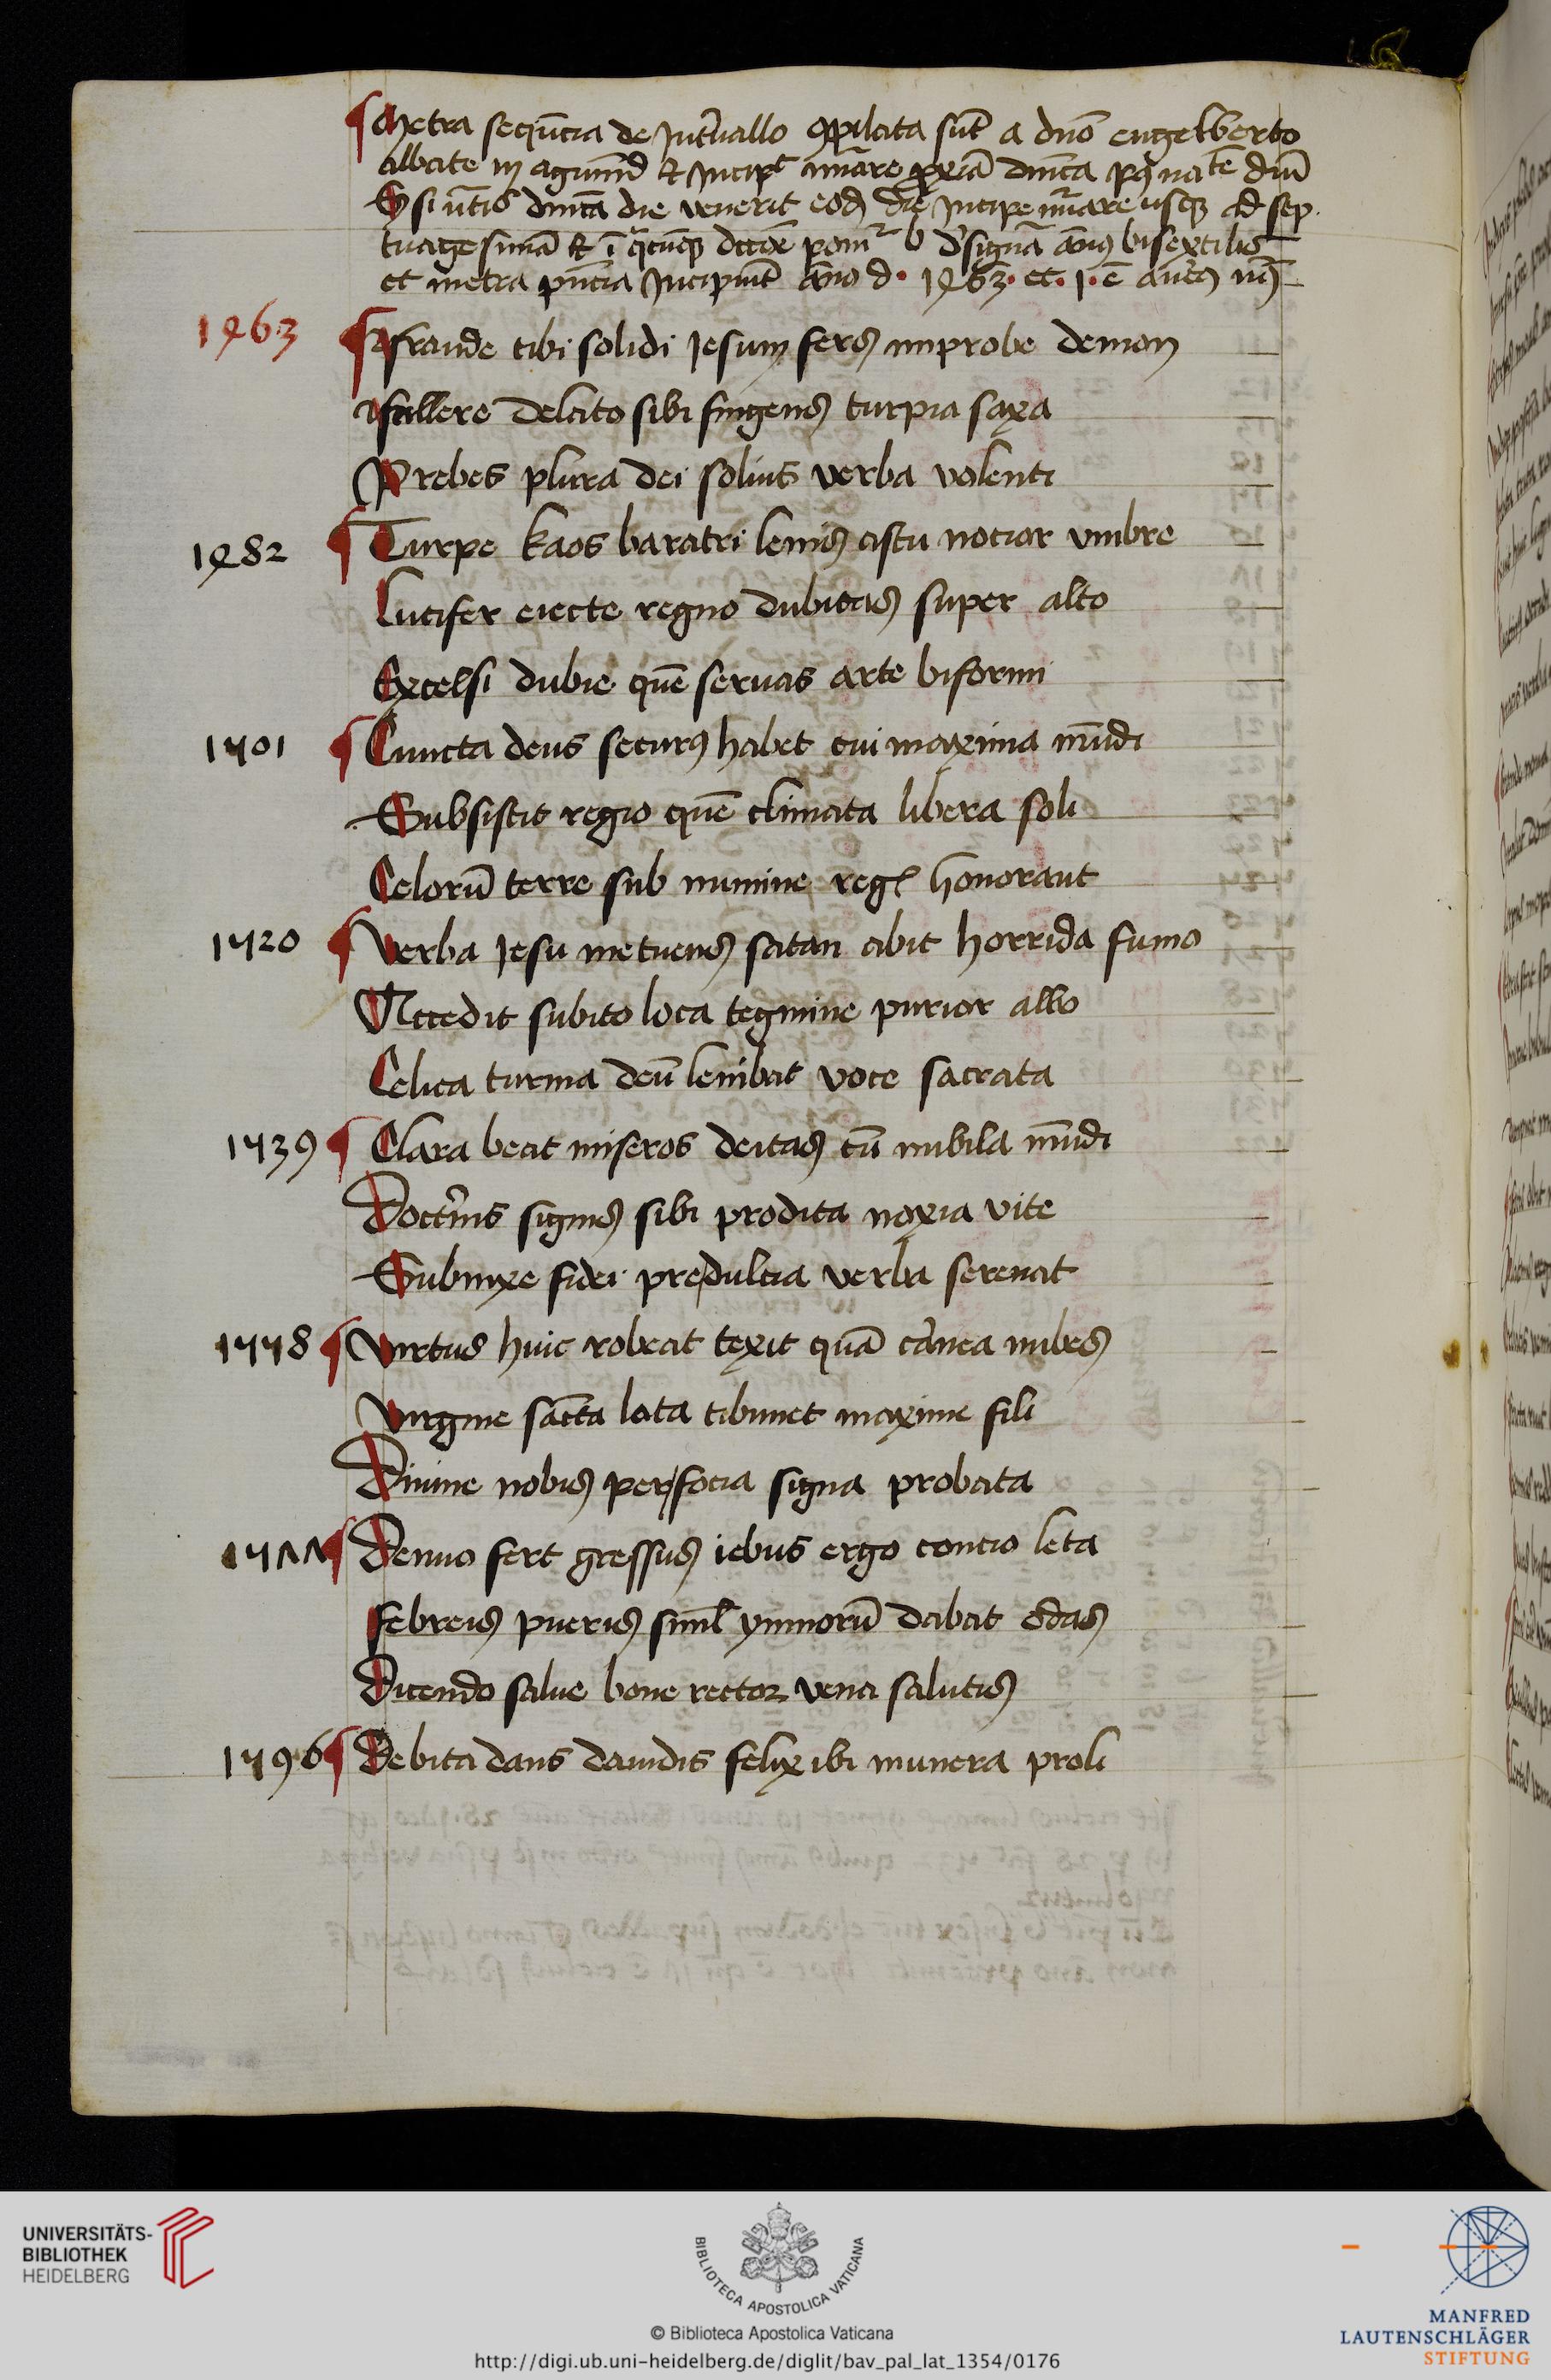 ¶ Metra sequẽcia de Int̃vallo ꝯpilata sũt a dnõ engelberto
abbate in agmũd ⁊ Incipt̃ nũare ꝓxiã dnĩca pꝰ natẽ dnĩ
Et si nãtis dnĩca die venerit eodẽ die Incipe nũare usqꝫ ad sep
tuagesimã ⁊ ĩ qãcũqꝫ dictõe ponit᷑ b dˀsignat̃ ãnꝰ bisextilis
et metra pñcia Incipiũt ãno d. 1463. et
1463 ¶ fraude tibi solidi Jesum fers improbe demon
fallere delato sibi fingens turpia saxa
Prebes plura dei solius verba volenti
1482 ¶ Turpe kaos baratri lenis astu nocior vmbre
Lucifer eiecte regno dubitas super alto
Excelsi dubie quẽ seruas arte biformi
1501 ¶ Cuncta deus securꝰ habet cui maxima mũdi
Subsistit regio quẽ climata libera soli
Celorũ terre sub numine reg̃ honorant
1520 ¶ Verba Jesu metuens satan abit horrida fumo
Accedit subito loca tegmine purior albo
Celica turma deũ lenibat voce sacrata
1539 ¶ Clara beat miseros deitas cũ nubila mũdi
Doctˀnis signis sibi prodita noxia vite
Subnixe fidei predulcia verba serenat
1558 ¶ Virtus huic robeat texit quã cãnea nubes
Virgine sãcta lota tibimet maxime fili
Diuine nobis per focia signa probata
1577 ¶ Denuo fert gressus iebus ergo concio leta
febreis pueris siml̃ ymnorũ dabat odas
Dicendo salue bone rector vena salutis
1596 ¶ Debita dans dauidis felix ibi munera proli
UNIVERSITÄTS-
BIBLIOTHEK
HEIDELBERG
BIBLIOTECA APOSTOLICA VATICANA
© Biblioteca Apostolica Vaticana
http://digi.ub.uni-heidelberg.de/diglit/bav_pal_lat_1354/0176
MANFRED
LAUTENSCHLÄGER
STIFTUNG